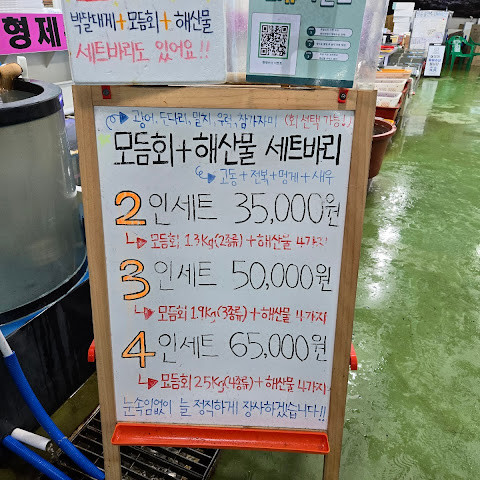 형제
박달대게+모듬회+해산물
세트바리도 있어요!!
광어, 도다리, 밀치, 우럭, 참가자미 (회 선택 가능!)
모듬회+해산물 세트바리
고동+전복+멍게+새우
2인세트 35,000원
모듬회 1.3kg(2종류)+해산물 4가지
3인세트 50,000원
모듬회 1.9kg(3종류)+해산물 4가지
4인세트 65,000원
모듬회 2.5kg(4종류)+해산물 4가지
눈속임없이 늘 정직하게 장사하겠습니다!!